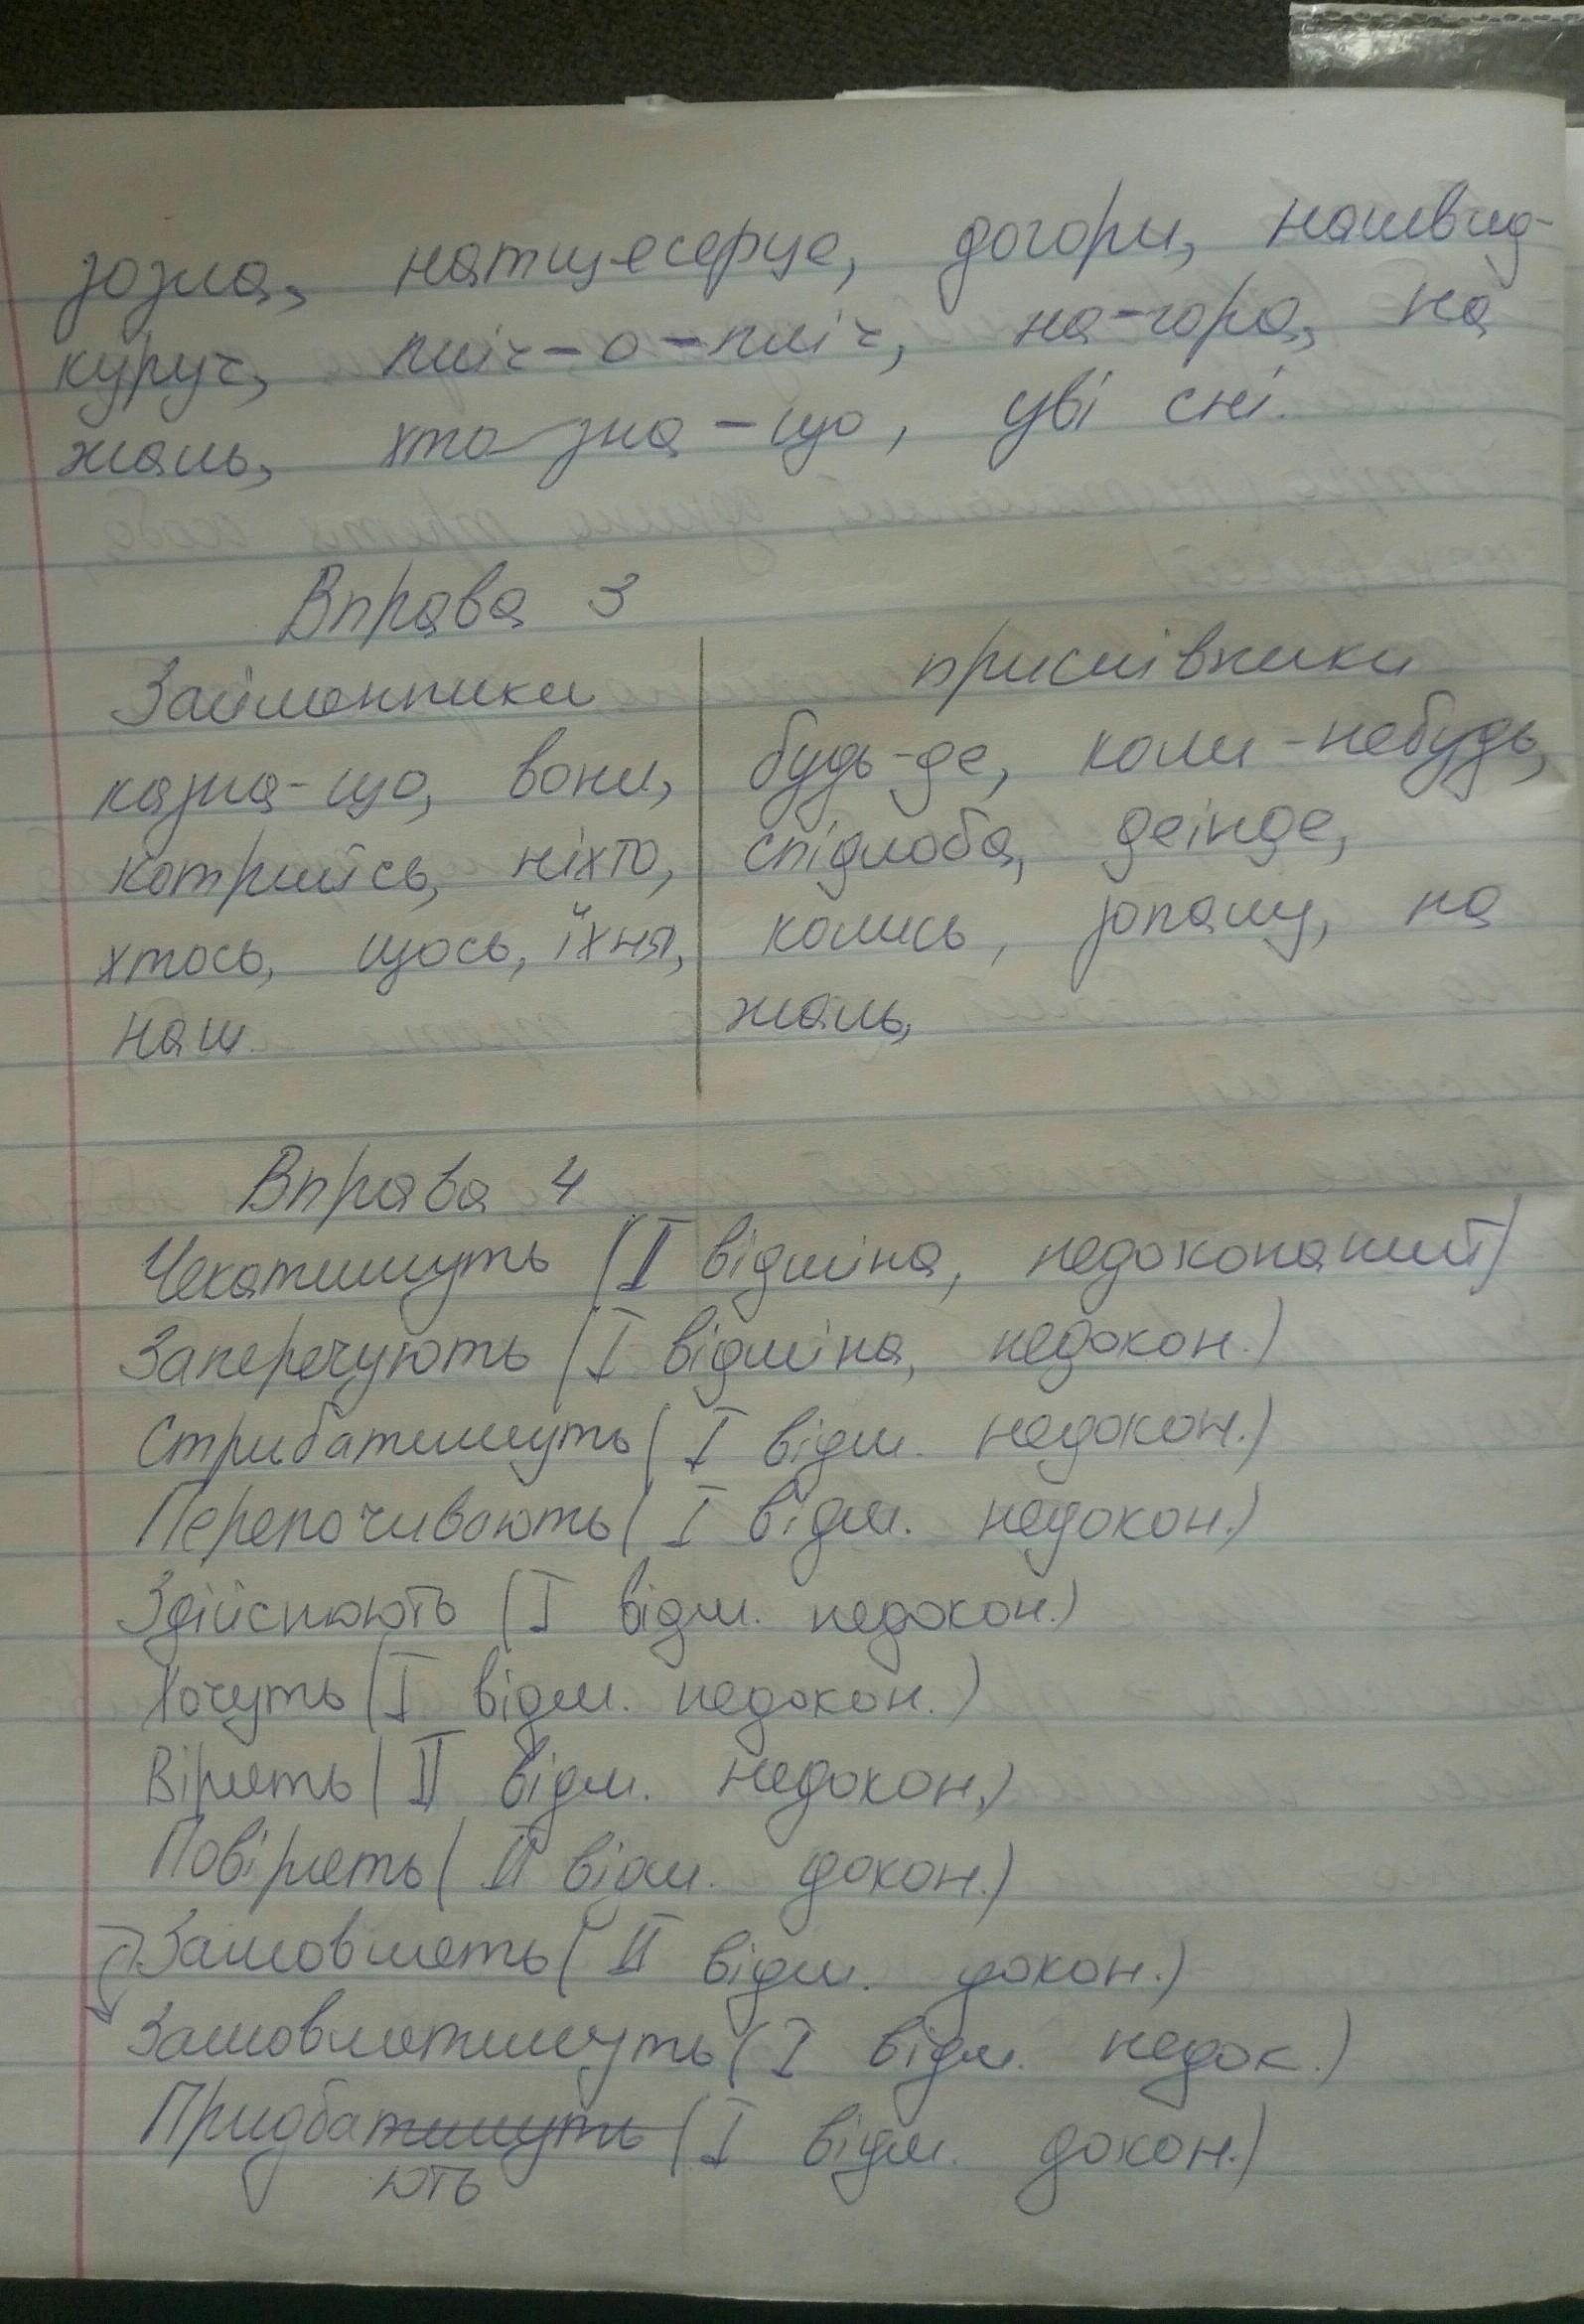 зозла, натщесерце, догори, нашвид-
куруч, пліч-о-пліч, на-гора, на
жаль, хтозна-що, уві сні.
Вправа 3
Займенники | прислівники
казна-що, вони, | будь-де, коли-небудь,
котрийсь, ніхто, | спідлоба, деінде,
хтось, щось, їхня, | колись, зопалу, на
наш | жаль,
Вправа 4
Чекатимуть (I відміна, недоконаний)
Заперечують (I відміна, недокон.)
Стрибатимуть (I відм. недокон.)
Перепочивають (I відм. недокон.)
Здійснюють (I відм. недокон.)
Хочуть (I відм. недокон.)
Вірять (II відм. недокон.)
Повірять (II відм. докон.)
Замовлять (II відм. докон.)
Замовлятимуть (I відм. недок.)
Придбатимуть (I відм. докон.)
ють